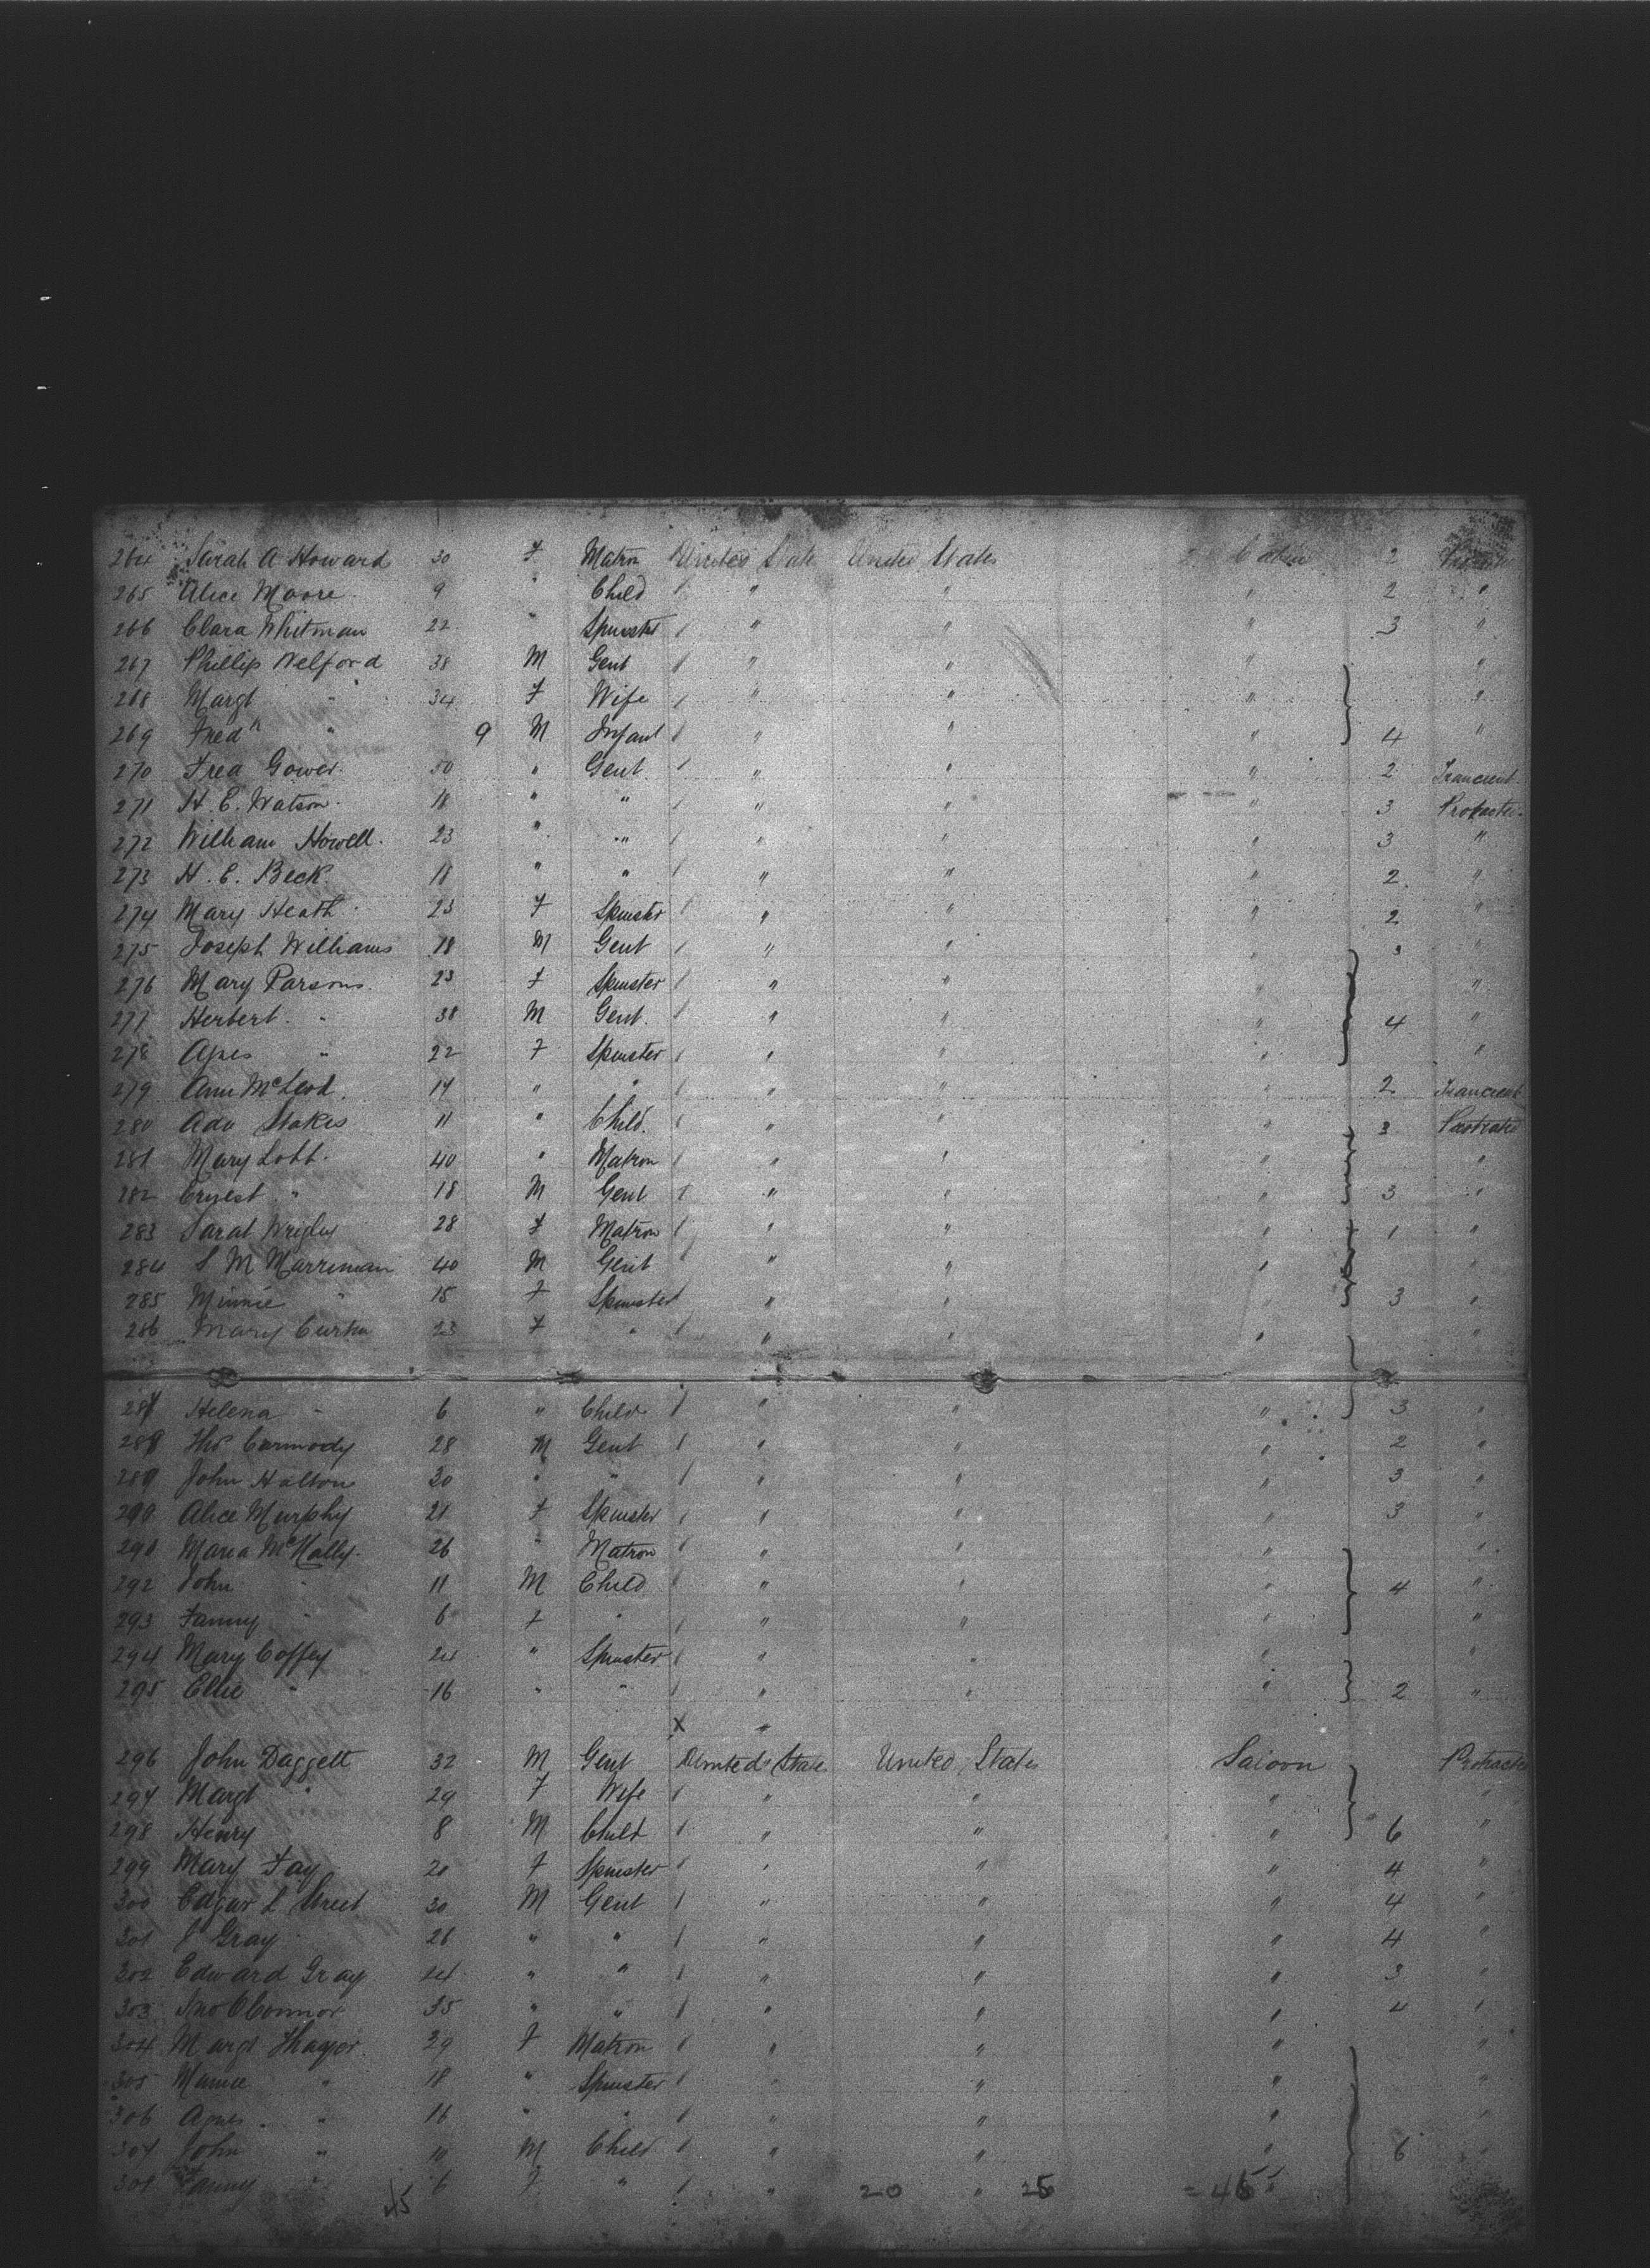 264 Sarah A Howard 30 F Matron United State United States Cabin 2
265 Alice Moore 9 " Child " " " 2 "
266 Clara Whitman 22 " Spinster " " " 3 "
267 Phillip Welford 38 M Gent " " " "
268 Margt " 34 F Wife " " " "
269 Fredk " 9 M Infant " " " 4 "
270 Fred Gower 50 " Gent " " " 2 Trancient
271 H. E. Watson 18 " " " " " 3 Protracted
272 William Howell 23 " " " " " 3 "
273 H. E. Beck 18 " " " " " 2 "
274 Mary Heath 23 F Spinster " " " 2 "
275 Joseph Williams 18 M Gent " " " 3 "
276 Mary Parsons 23 F Spinster " " " "
277 Herbert " 38 M Gent " " " 4 "
278 Agnes " 22 F Spinster " " " "
279 Ann McLeod 14 " " " " " 2 Trancient
280 Ada Stokes 11 " Child " " " 3 Protracted
281 Mary Lobb 40 " Matron " " " "
282 Ernest " 18 M Gent " " " 3 "
283 Sarah Wrigley 28 F Matron " " " 1 "
284 S M Marriman 40 M Gent " " " "
285 Minnie " 15 F Spinster " " " 3 "
286 Mary Curtin 23 F " " " " "
287 Helena " 6 " Child " " " 3 "
288 Thos Carmody 28 M Gent " " " 2 "
289 John Halton 30 " " " " " 3 "
290 Alice Murphy 21 F Spinster " " " 3 "
291 Maria McNally 26 " Matron " " " "
292 John " 11 M Child " " " 4 "
293 Fanny " 6 F " " " " "
294 Mary Coffey 24 " Spinster " " " "
295 Ellie " 16 " " " " " 2 "
x "
296 John Daggett 32 M Gent United State United States Saioon Protracted
297 Margt " 29 F Wife " " " "
298 Henry 8 M Child " " " 6 "
299 Mary Fay 20 F Spinster " " " 4 "
300 Edgar L Street 30 M Gent " " " 4 "
301 J Gray 26 " " " " " 4 "
302 Edward Gray 24 " " " " " 3 "
303 Jno O'Connor 35 " " " " " 4 "
304 Margt Thayer 39 F Matron " " " "
305 Mamie " 18 " Spinster " " " "
306 Agnes " 16 " " " " " "
307 John " 10 M Child " " " 6 "
308 Fanny " 6 F " " " "
45 20 25 = 45